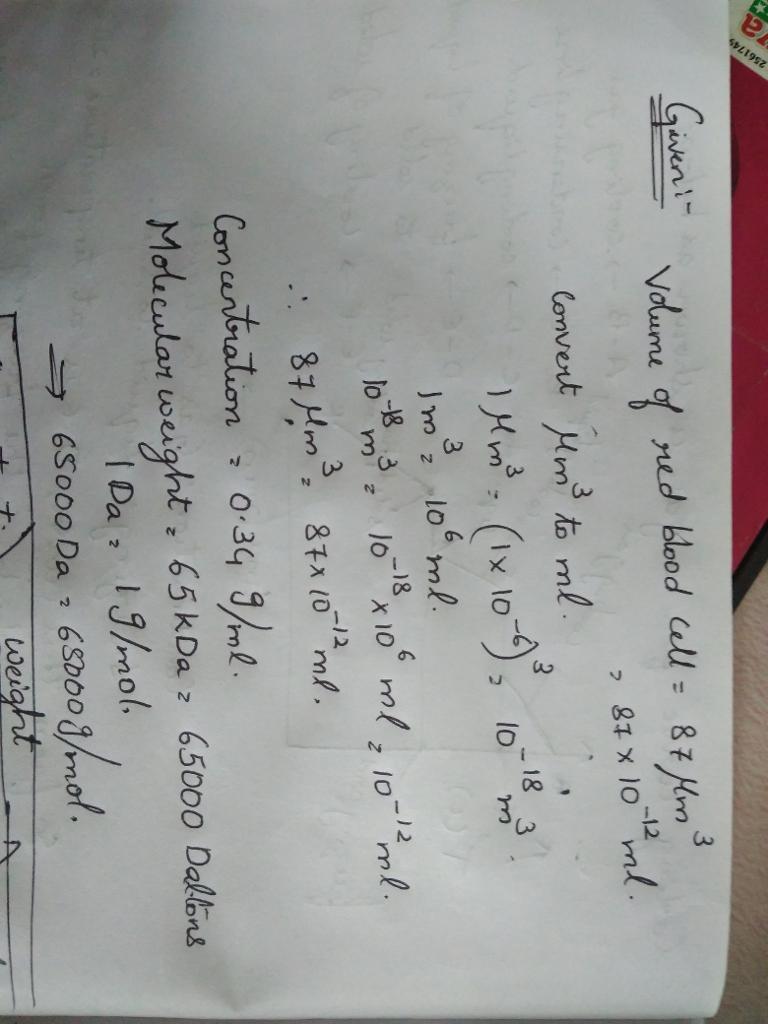 Given:- Volume of red blood cell = 87 μm³
= 87 × 10⁻¹² ml.
Convert μm³ to ml.
1 μm³ = (1 × 10⁻⁶)³ = 10⁻¹⁸ m³.
1 m³ = 10⁶ ml.
10⁻¹⁸ m³ = 10⁻¹⁸ × 10⁶ ml = 10⁻¹² ml.
∴ 87 μm³ = 87 × 10⁻¹² ml.
Concentration = 0.34 g/ml.
Molecular weight = 65 kDa = 65000 Daltons
1 Da = 1 g/mol.
⇒ 65000 Da = 65000 g/mol.
weight
2561749